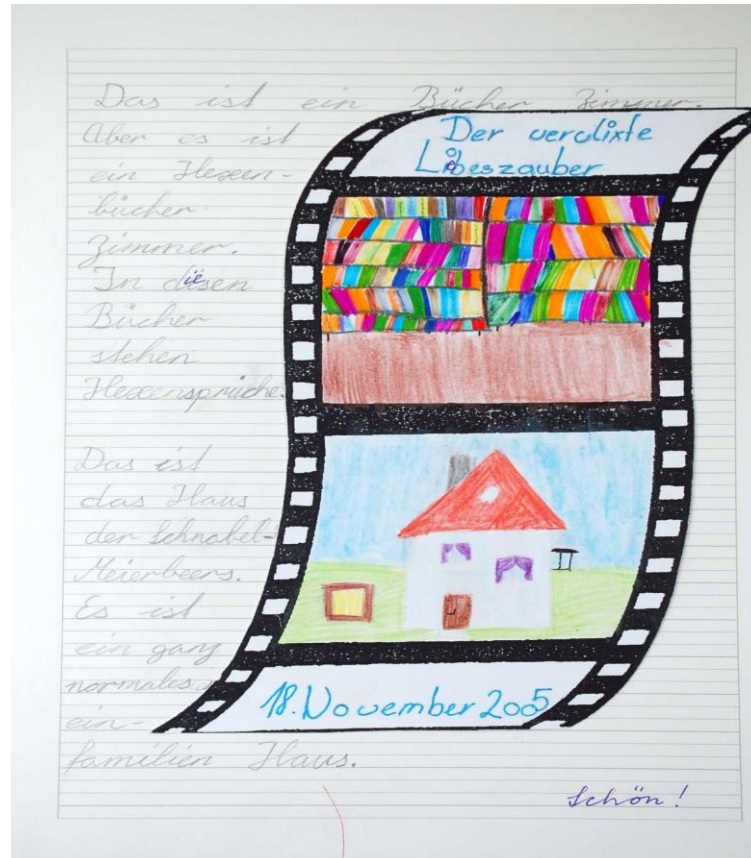 Das ist ein Bücher Zimmer.
Aber es ist
ein Hexen-
bücher
Zimmer.
In diesen
Bücher
stehen
Hexensprüche.
Das ist
das Haus
der Schnabel-
Meierbeers.
Es ist
ein ganz
normales
ein-
familien Haus.
Der verflixte
Liebeszauber
18. November 2005
Schön!